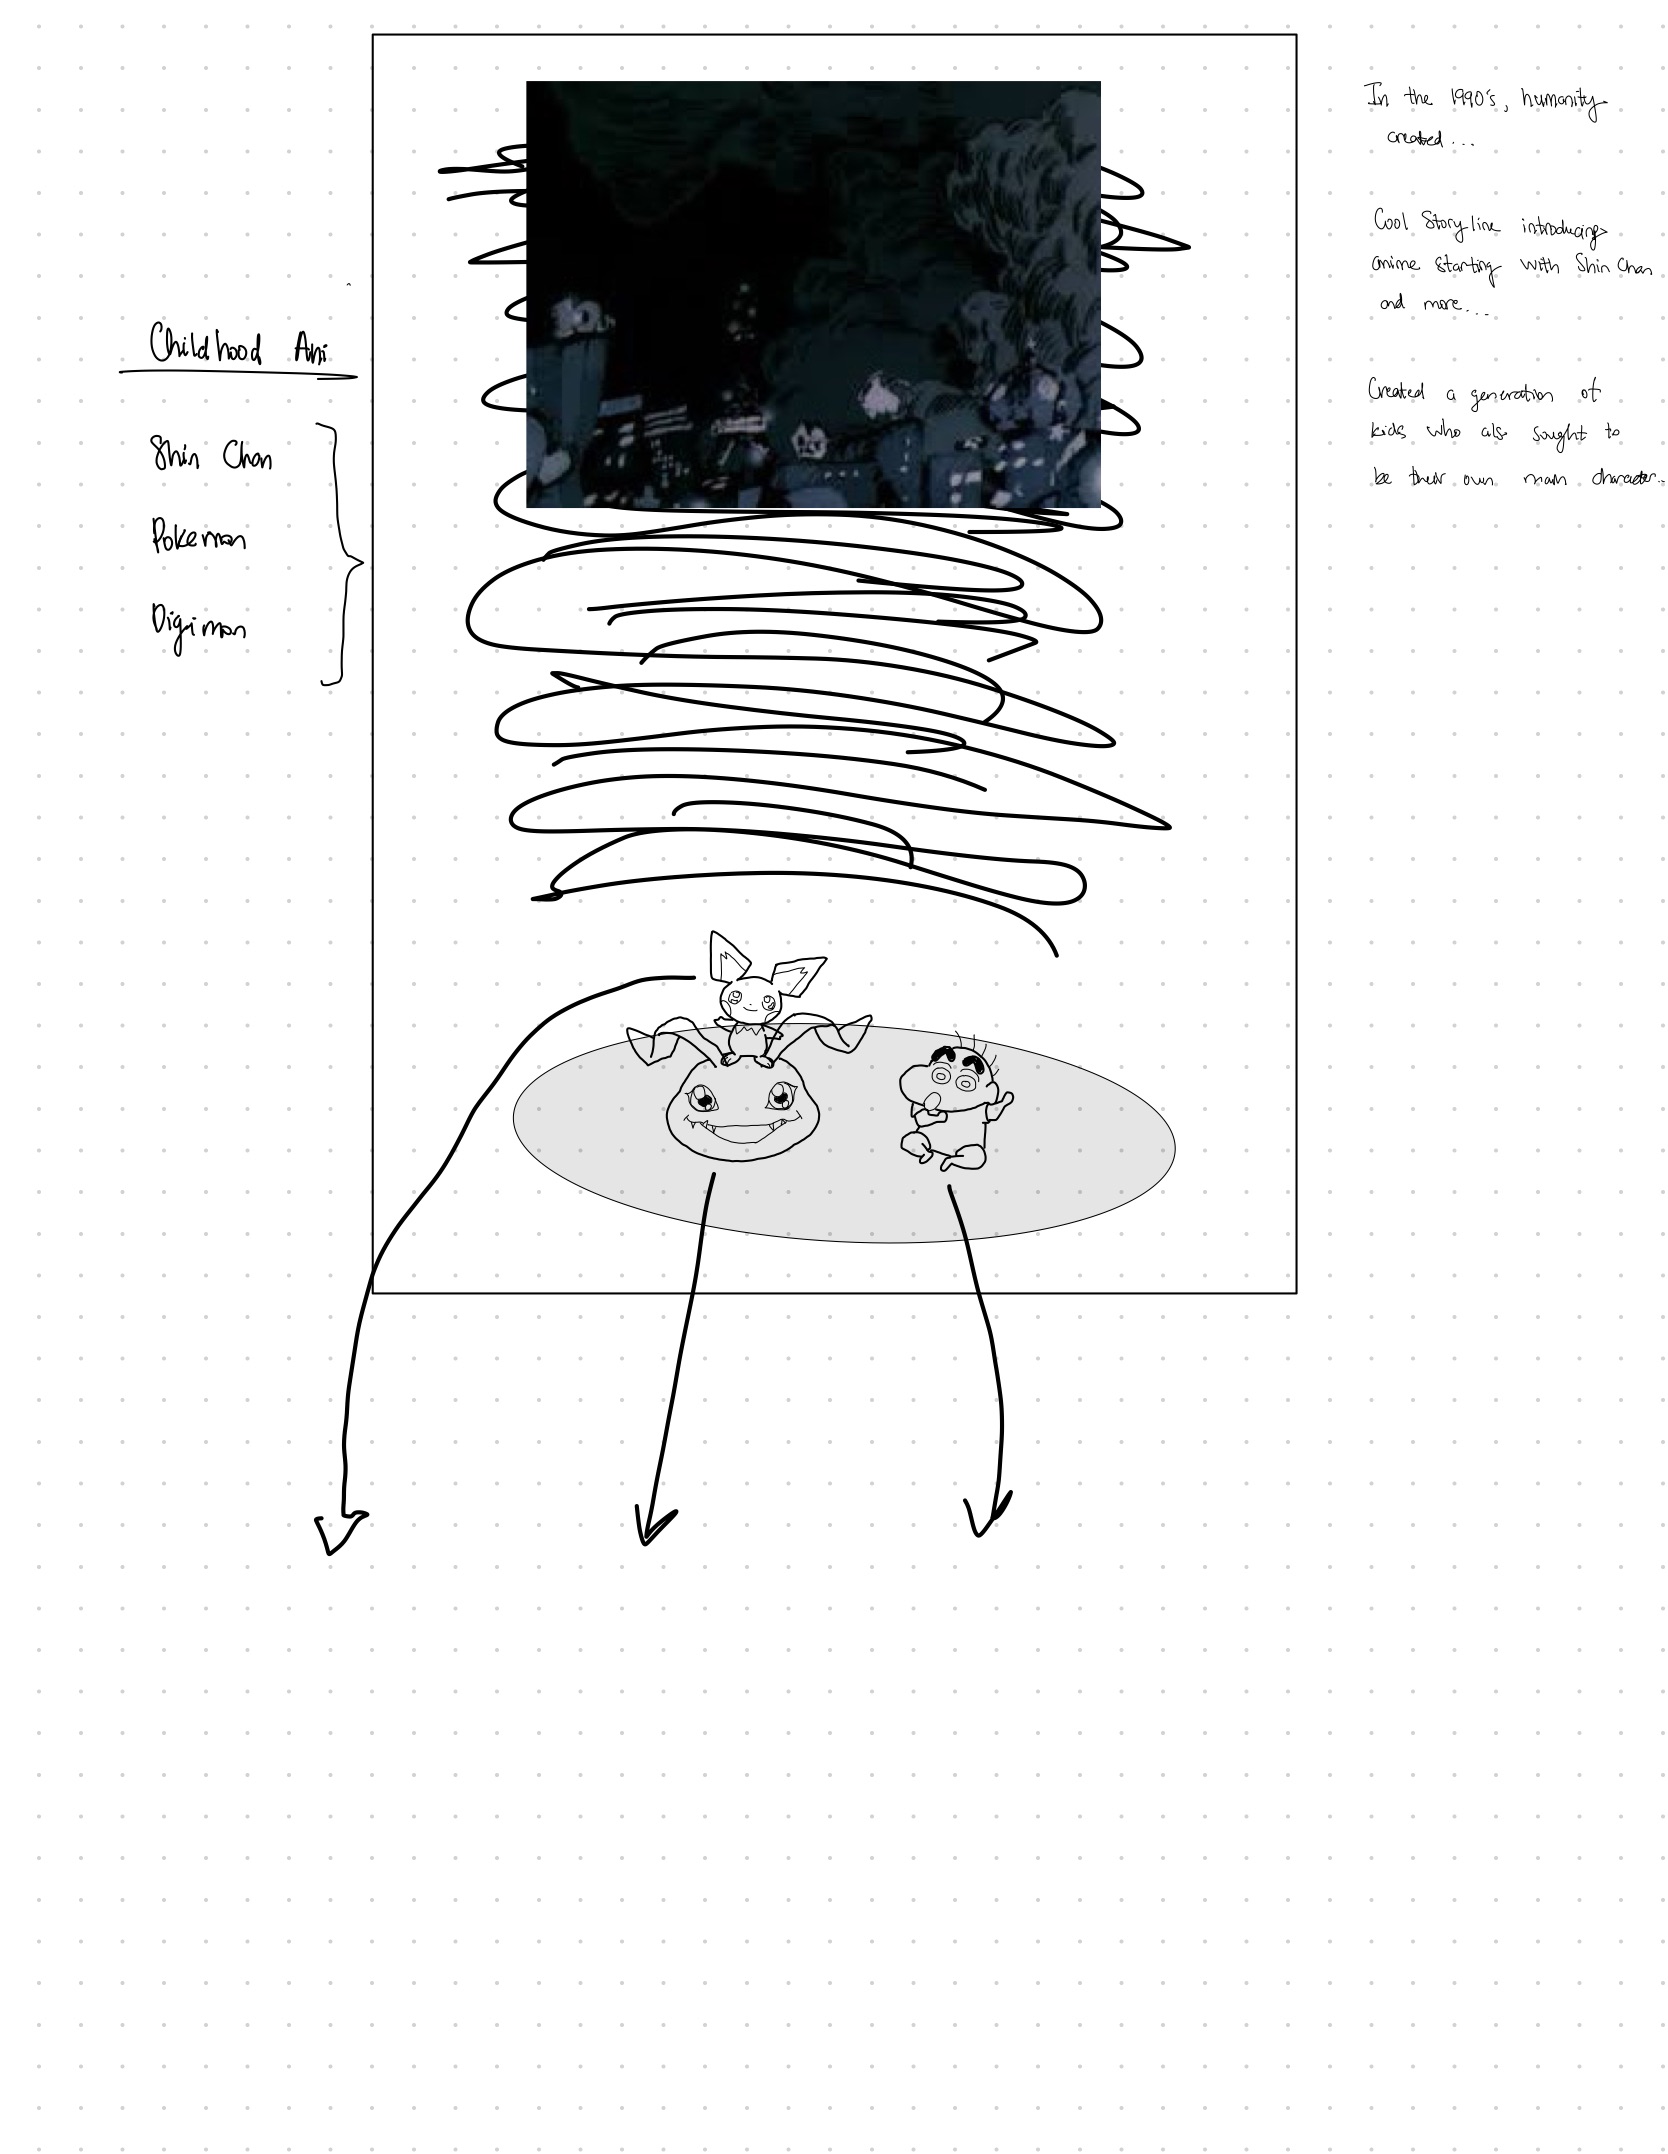 Childhood Ani
Shin Chan
Pokemon
Digimon
In the 1990's, humanity
created...
Cool Story line introducing
anime starting with Shin Chan
and more...
Created a generation of
kids who also sought to
be their own main character..